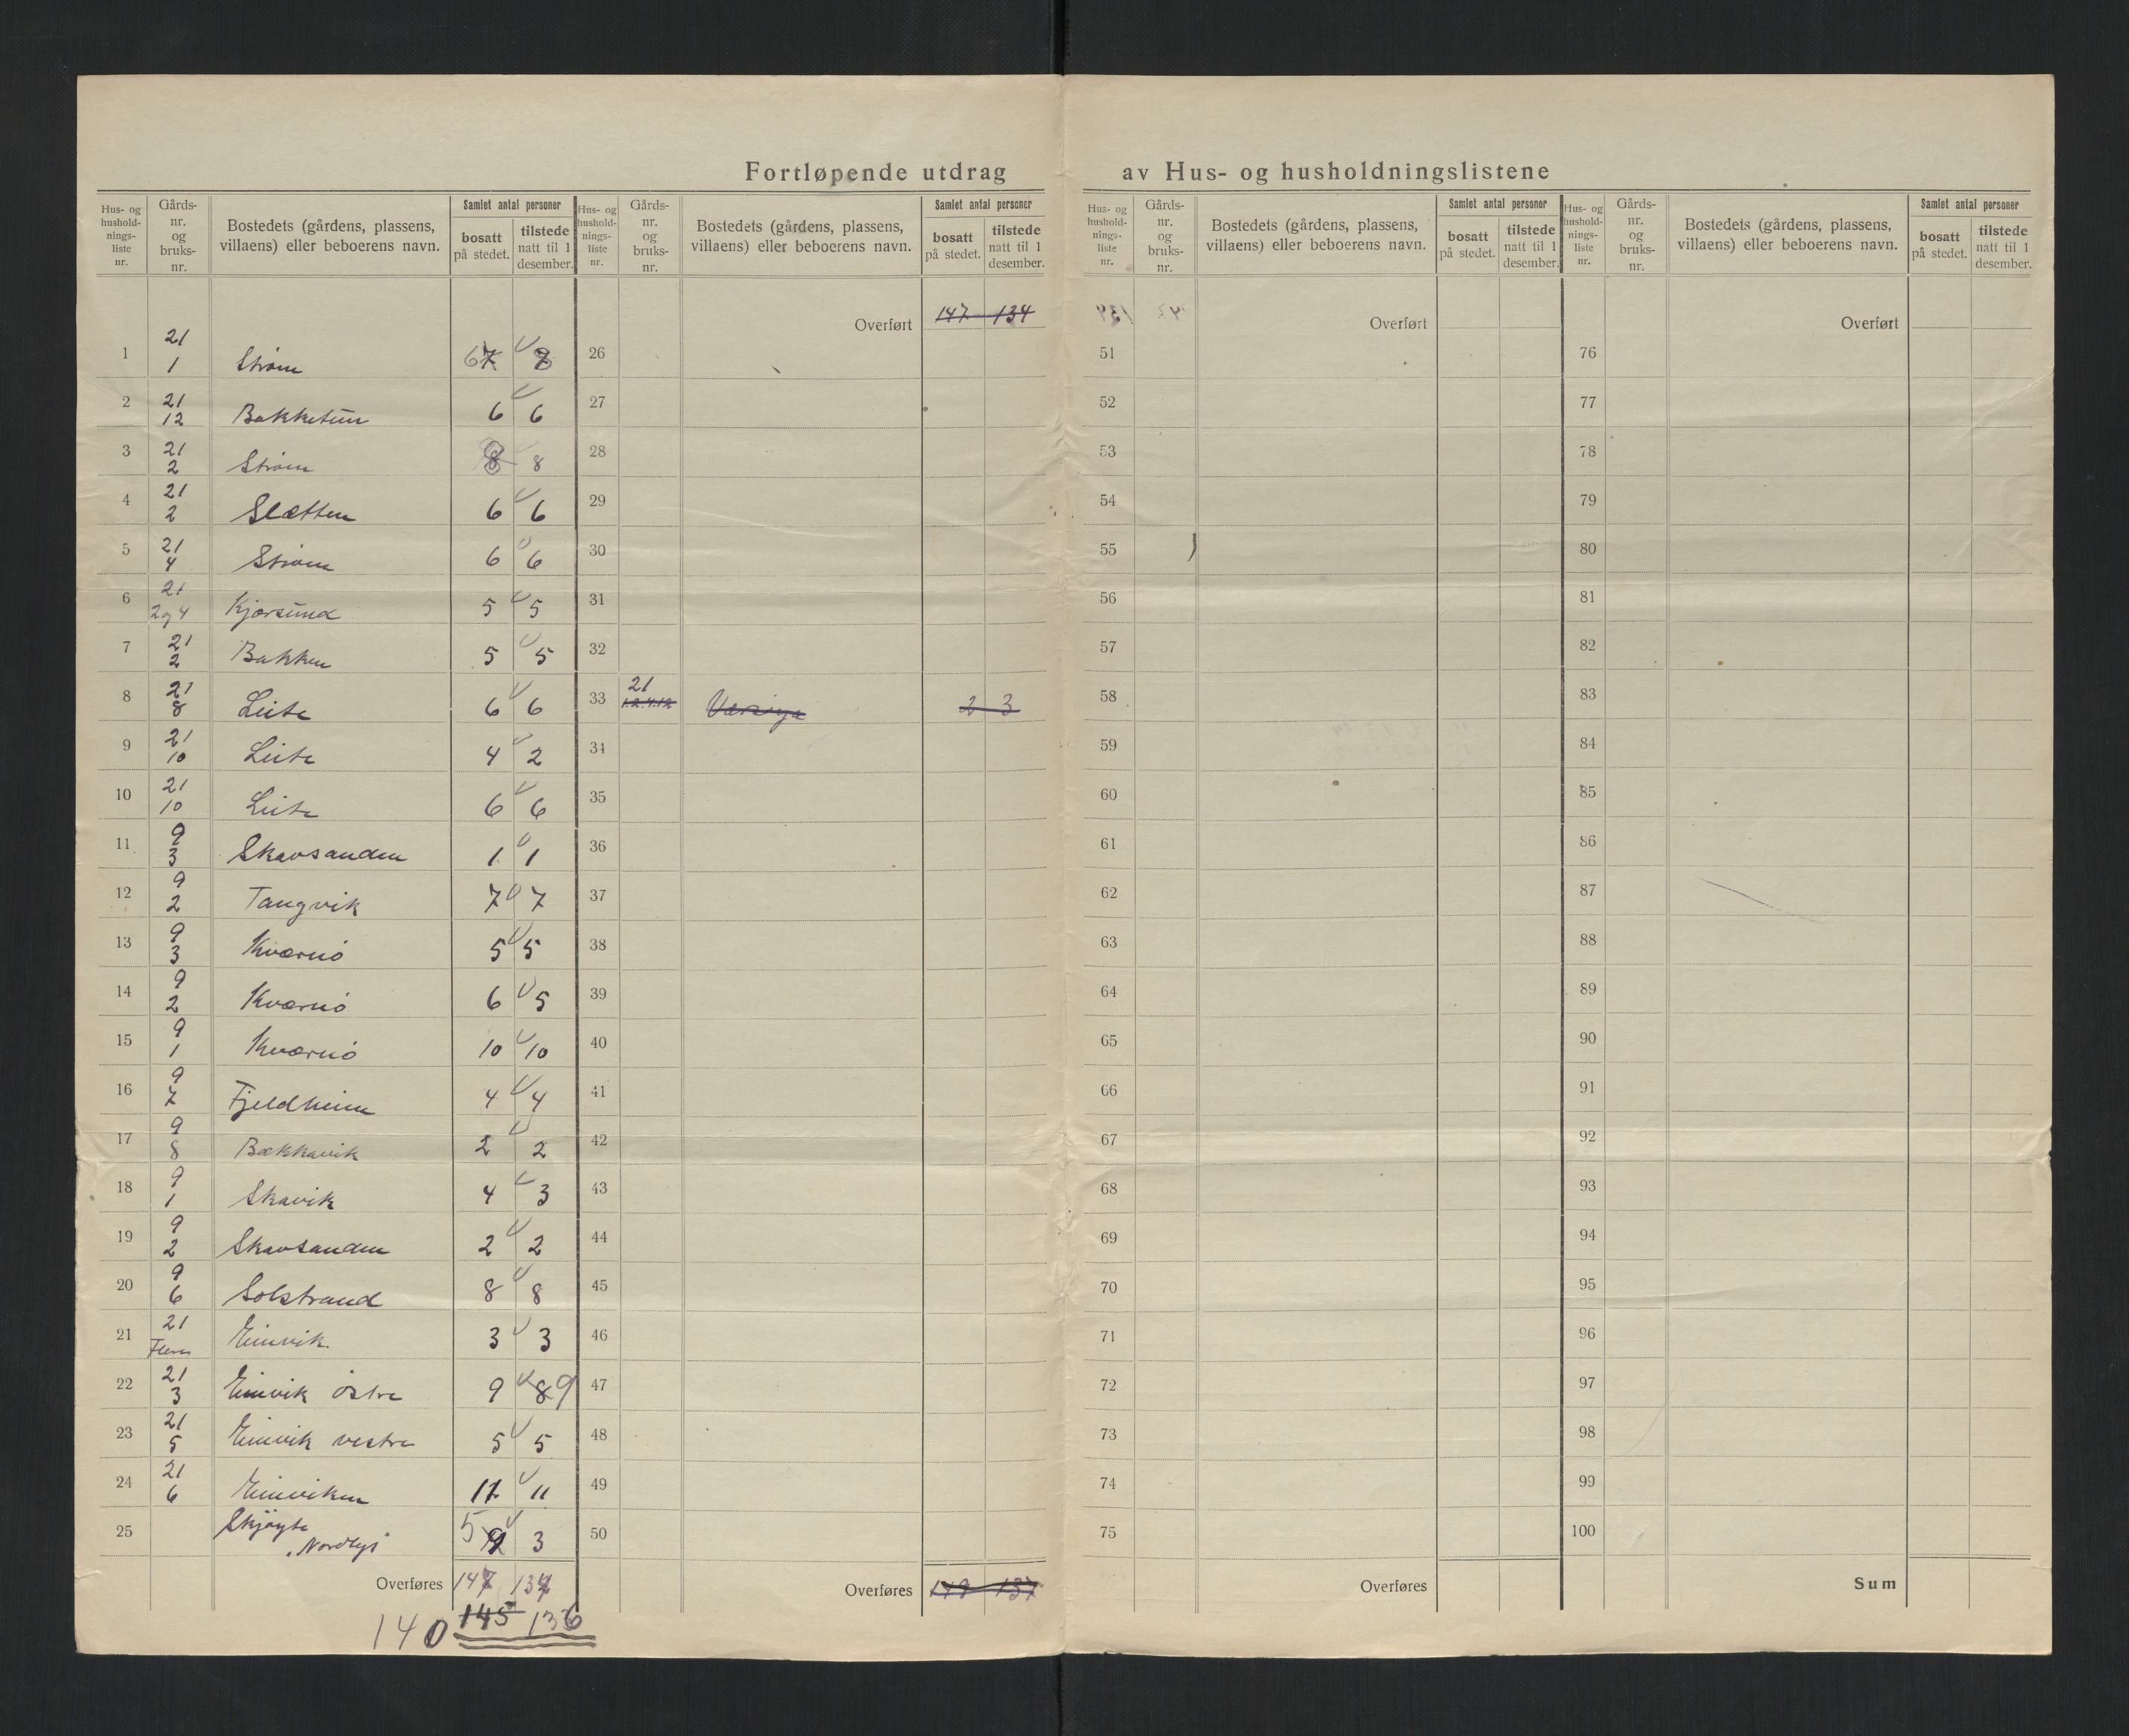 Fortløpende utdrag av Hus- og husholdningslistene
Hus- og hushold-nings-liste nr. | Gårds-nr. og bruks-nr. | Bostedets (gårdens, plassens, villaens) eller beboerens navn. | Samlet antal personer | bosatt på stedet. | tilstede natt til 1 desember.
Hus- og hushold-nings-liste nr. | Gårds-nr. og bruks-nr. | Bostedets (gårdens, plassens, villaens) eller beboerens navn. | Samlet antal personer | bosatt på stedet. | tilstede natt til 1 desember.
Hus- og hushold-nings-liste nr. | Gårds-nr. og bruks-nr. | Bostedets (gårdens, plassens, villaens) eller beboerens navn. | Samlet antal personer | bosatt på stedet. | tilstede natt til 1 desember.
Hus- og hushold-nings-liste nr. | Gårds-nr. og bruks-nr. | Bostedets (gårdens, plassens, villaens) eller beboerens navn. | Samlet antal personer | bosatt på stedet. | tilstede natt til 1 desember.
1 21 1 Strøm 6
2 21 12 Bakketun 6 6
3 21 2 Strøm 8 8
4 21 2 Slætten 6 6
5 21 4 Strøm 6 6
6 21 2 og 4 Kjørsund 5 5
7 21 2 Bakken 5 5
8 21 8 Leite 6 6
9 21 10 Leite 4 2
10 21 10 Leite 6 6
11 9 3 Skavsanden 1 1
12 9 2 Tangvik 7 7
13 9 3 Kværnø 5 5
14 9 2 Kværnø 6 5
15 9 1 Kværnø 10 10
16 9 7 Fjeldheim 4 4
17 9 8 Bækkavik 2 2
18 9 1 Skavik 4 3
19 9 2 Skavsanden 2 2
20 9 6 Solstrand 8 8
21 21 Flere Eimvik. 3 3
22 21 3 Eimvik østre 9 8 9
23 21 5 Eimvik vestre 5 5
24 21 6 Eimviken 11 11
25 Skjøyte „Nordlys" 5 3
Overføres 147 134
140 145 136
Overført 147 134
26
27
28
29
30
31
32
33 21 1.2.4.12 2 3
34
35
36
37
38
39
40
41
42
43
44
45
46
47
48
49
50
Overføres 149 137
Overført
51
52
53
54
55
56
57
58
59
60
61
62
63
64
65
66
67
68
69
70
71
72
73
74
75
Overføres
Overført
76
77
78
79
80
81
82
83
84
85
86
87
88
89
90
91
92
93
94
95
96
97
98
99
100
Sum